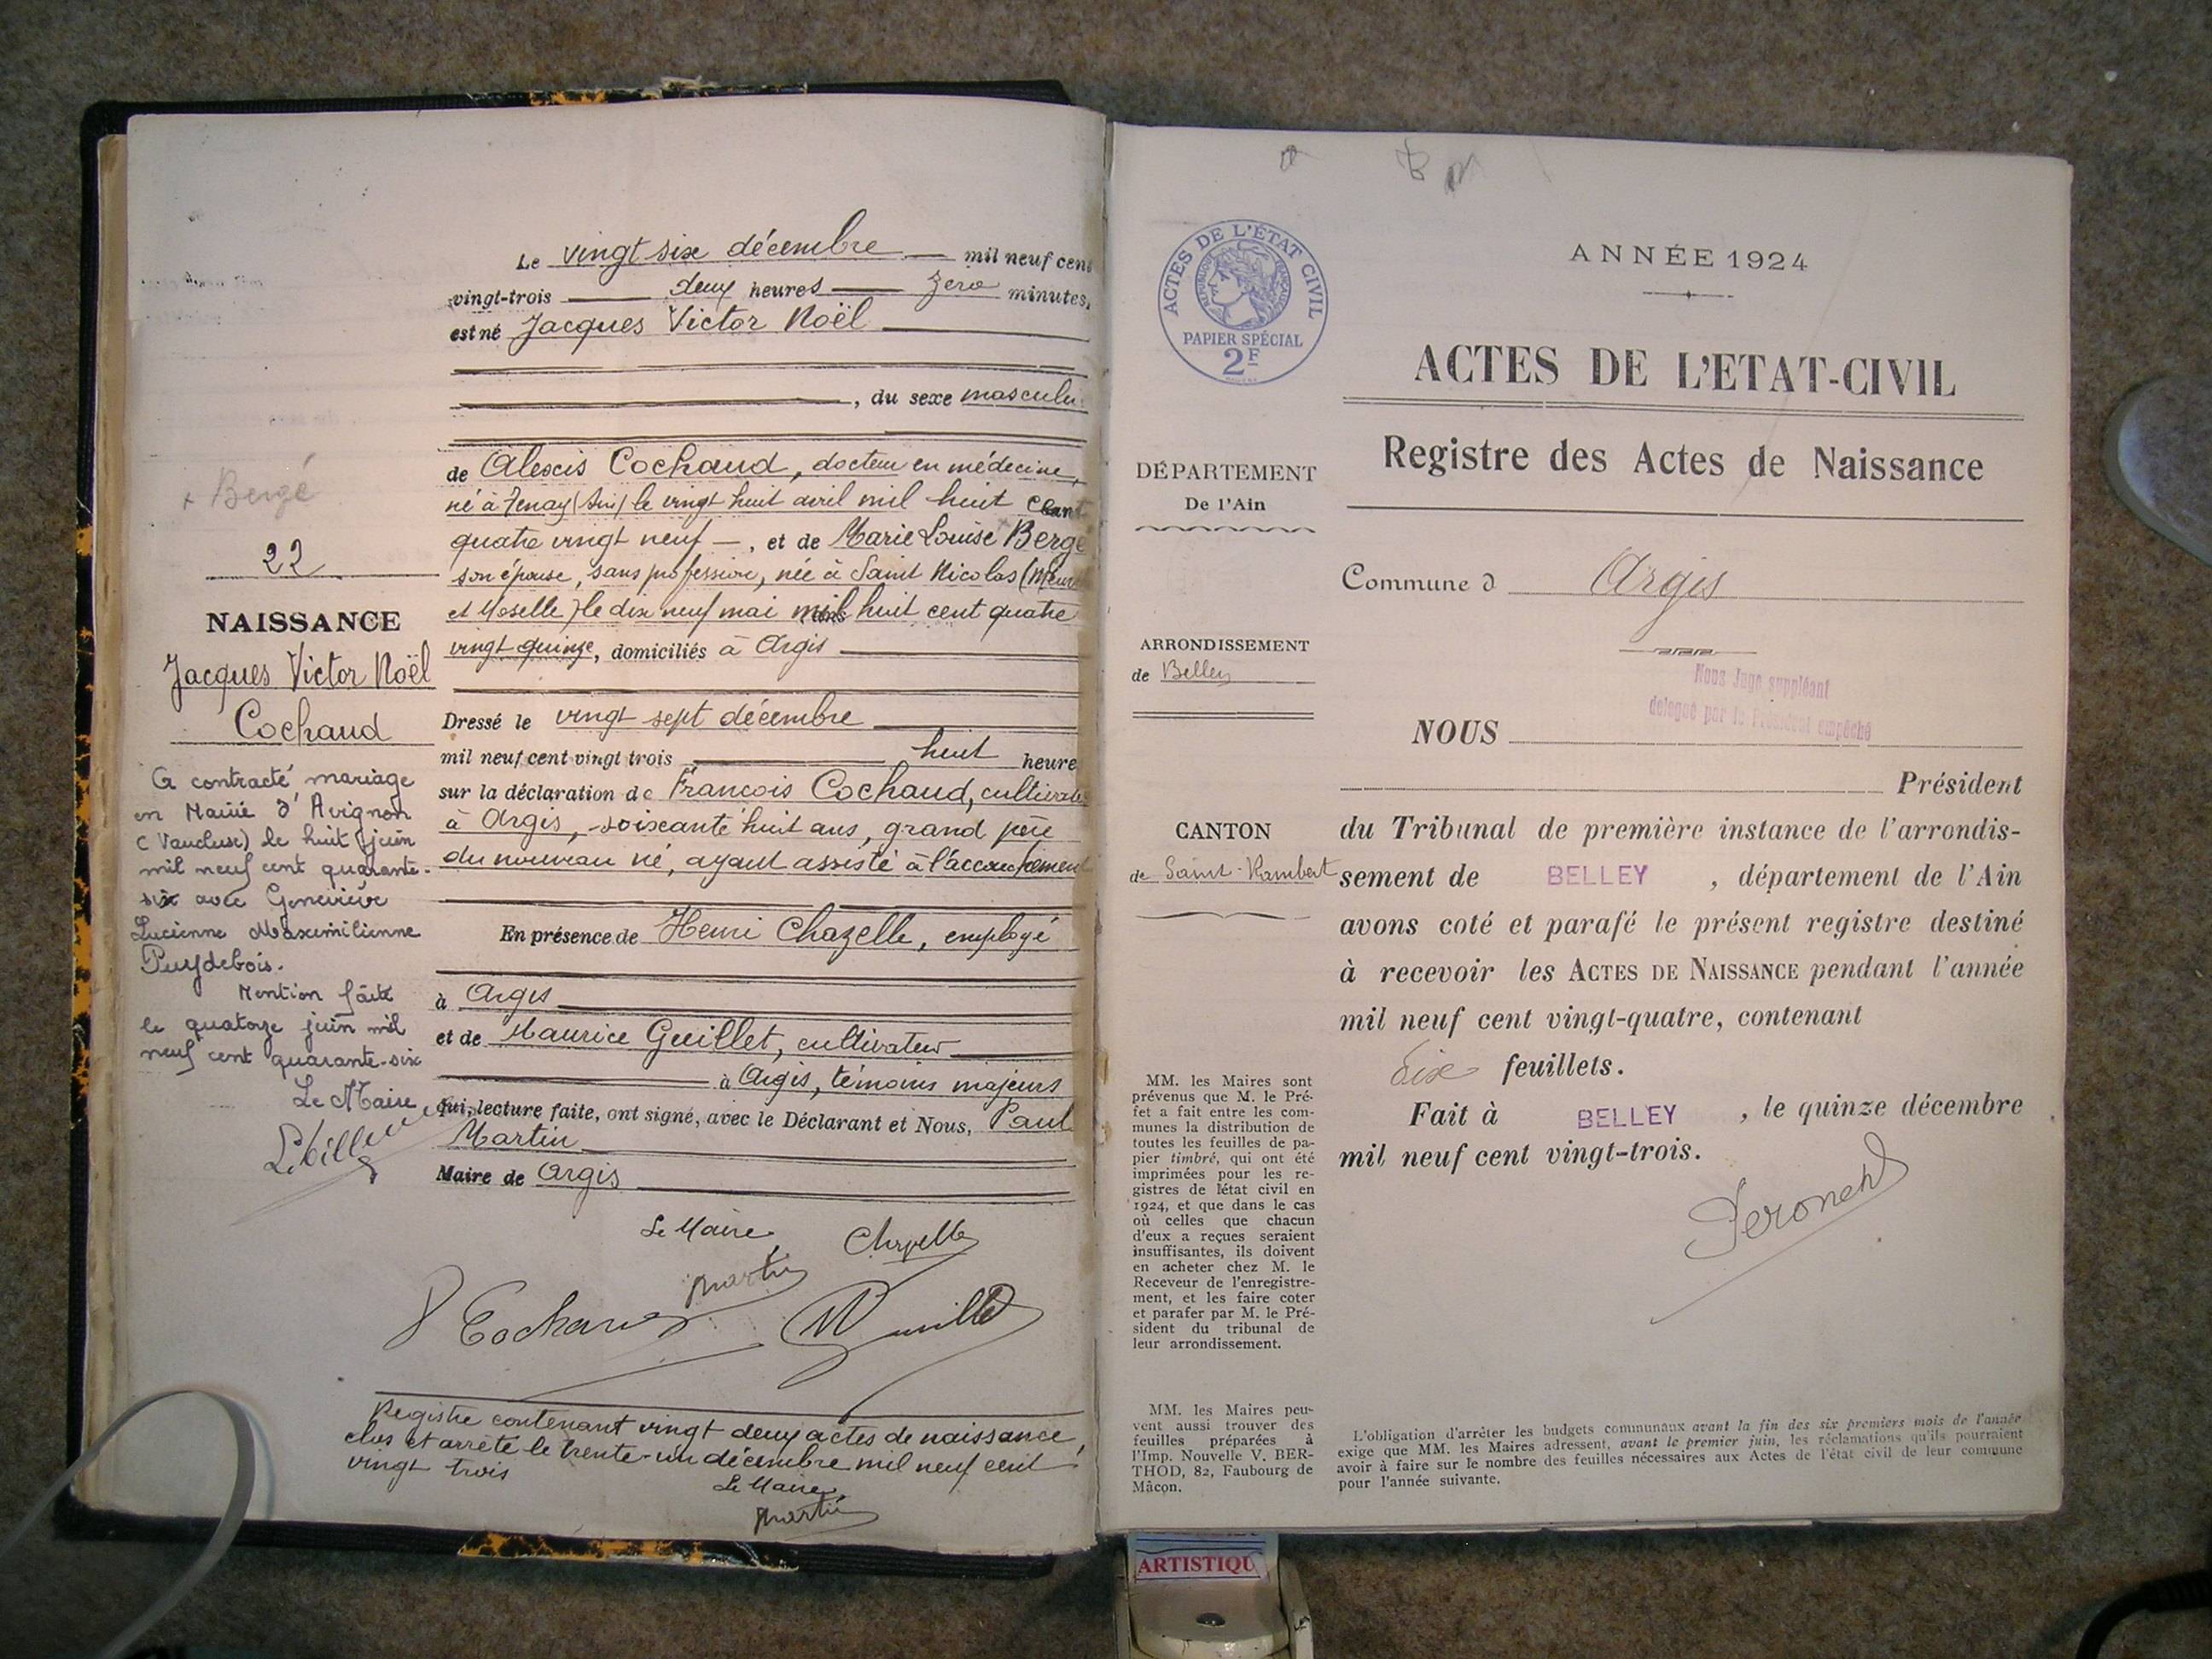 Le vingt six décembre mil neuf cent
vingt-trois deux heures zero minutes,
est né Jacques Victor Noël
, du sexe masculin
de Alexis Cochaud, docteur en médecine,
né à Tenay (Ain) le vingt huit avril mil huit cent
quatre vingt neuf, et de Marie Louise Bergé
son épouse, sans profession, née à Saint Nicolas (Meurthe
et Moselle) le dix neuf mai mil huit cent quatre
vingt quinze, domiciliés à Argis
Dressé le vingt sept décembre
mil neuf cent vingt trois huit heure
sur la déclaration de François Cochaud, cultivateur
à Argis, soixante huit ans, grand père
du nouveau né, ayant assisté à l'accouchement
En présence de Henri Chazelle, employé
à Argis
et de Maurice Guillet, cultivateur
à Argis, témoins majeurs
qui, lecture faite, ont signé, avec le Déclarant et Nous, Paul
Martin
Maire de Argis
Le Maire
Chazelle
Martin
Cochaud
Guillet
Registre contenant vingt deux actes de naissance,
clos et arrêté le trente-un décembre mil neuf cent
vingt trois
Le Maire,
Martin
+ Bergé
22
NAISSANCE
Jacques Victor Noël
Cochaud
A contracté mariage
en Mairie d'Avignon
(Vaucluse) le huit juin
mil neuf cent quarante-
six avec Geneviève
Lucienne Maximilienne
Puydebois.
Mention faite
le quatorze juin mil
neuf cent quarante-six
Le Maire
ACTES DE L'ÉTAT CIVIL
RÉPUBLIQUE FRANÇAISE
PAPIER SPÉCIAL
2F
DÉPARTEMENT
De l'Ain
ARRONDISSEMENT
de Belley
CANTON
de Saint-Rambert
MM. les Maires sont
prévenus que M. le Pré-
fet a fait entre les com-
munes la distribution de
toutes les feuilles de pa-
pier timbré, qui ont été
imprimées pour les re-
gistres de l'état civil en
1924, et que dans le cas
où celles que chacun
d'eux a reçues seraient
insuffisantes, ils doivent
en acheter chez M. le
Receveur de l'enregistre-
ment, et les faire coter
et parafer par M. le Pré-
sident du tribunal de
leur arrondissement.
MM. les Maires peu-
vent aussi trouver des
feuilles préparées à
l'Imp. Nouvelle V. BER-
THOD, 82, Faubourg de
Mâcon.
ANNÉE 1924
ACTES DE L'ETAT-CIVIL
Registre des Actes de Naissance
Commune d Argis
Nous Juge suppléant
délégué par le Président empêché
NOUS
Président
du Tribunal de première instance de l'arrondis-
sement de BELLEY, département de l'Ain
avons coté et parafé le présent registre destiné
à recevoir les ACTES DE NAISSANCE pendant l'année
mil neuf cent vingt-quatre, contenant
Six feuillets.
Fait à BELLEY, le quinze décembre
mil neuf cent vingt-trois.
L'obligation d'arrêter les budgets communaux avant la fin des six premiers mois de l'année
exige que MM. les Maires adressent, avant le premier juin, les réclamations qu'ils pourraient
avoir à faire sur le nombre des feuilles nécessaires aux Actes de l'état civil de leur commune
pour l'année suivante.
ARTISTIQU